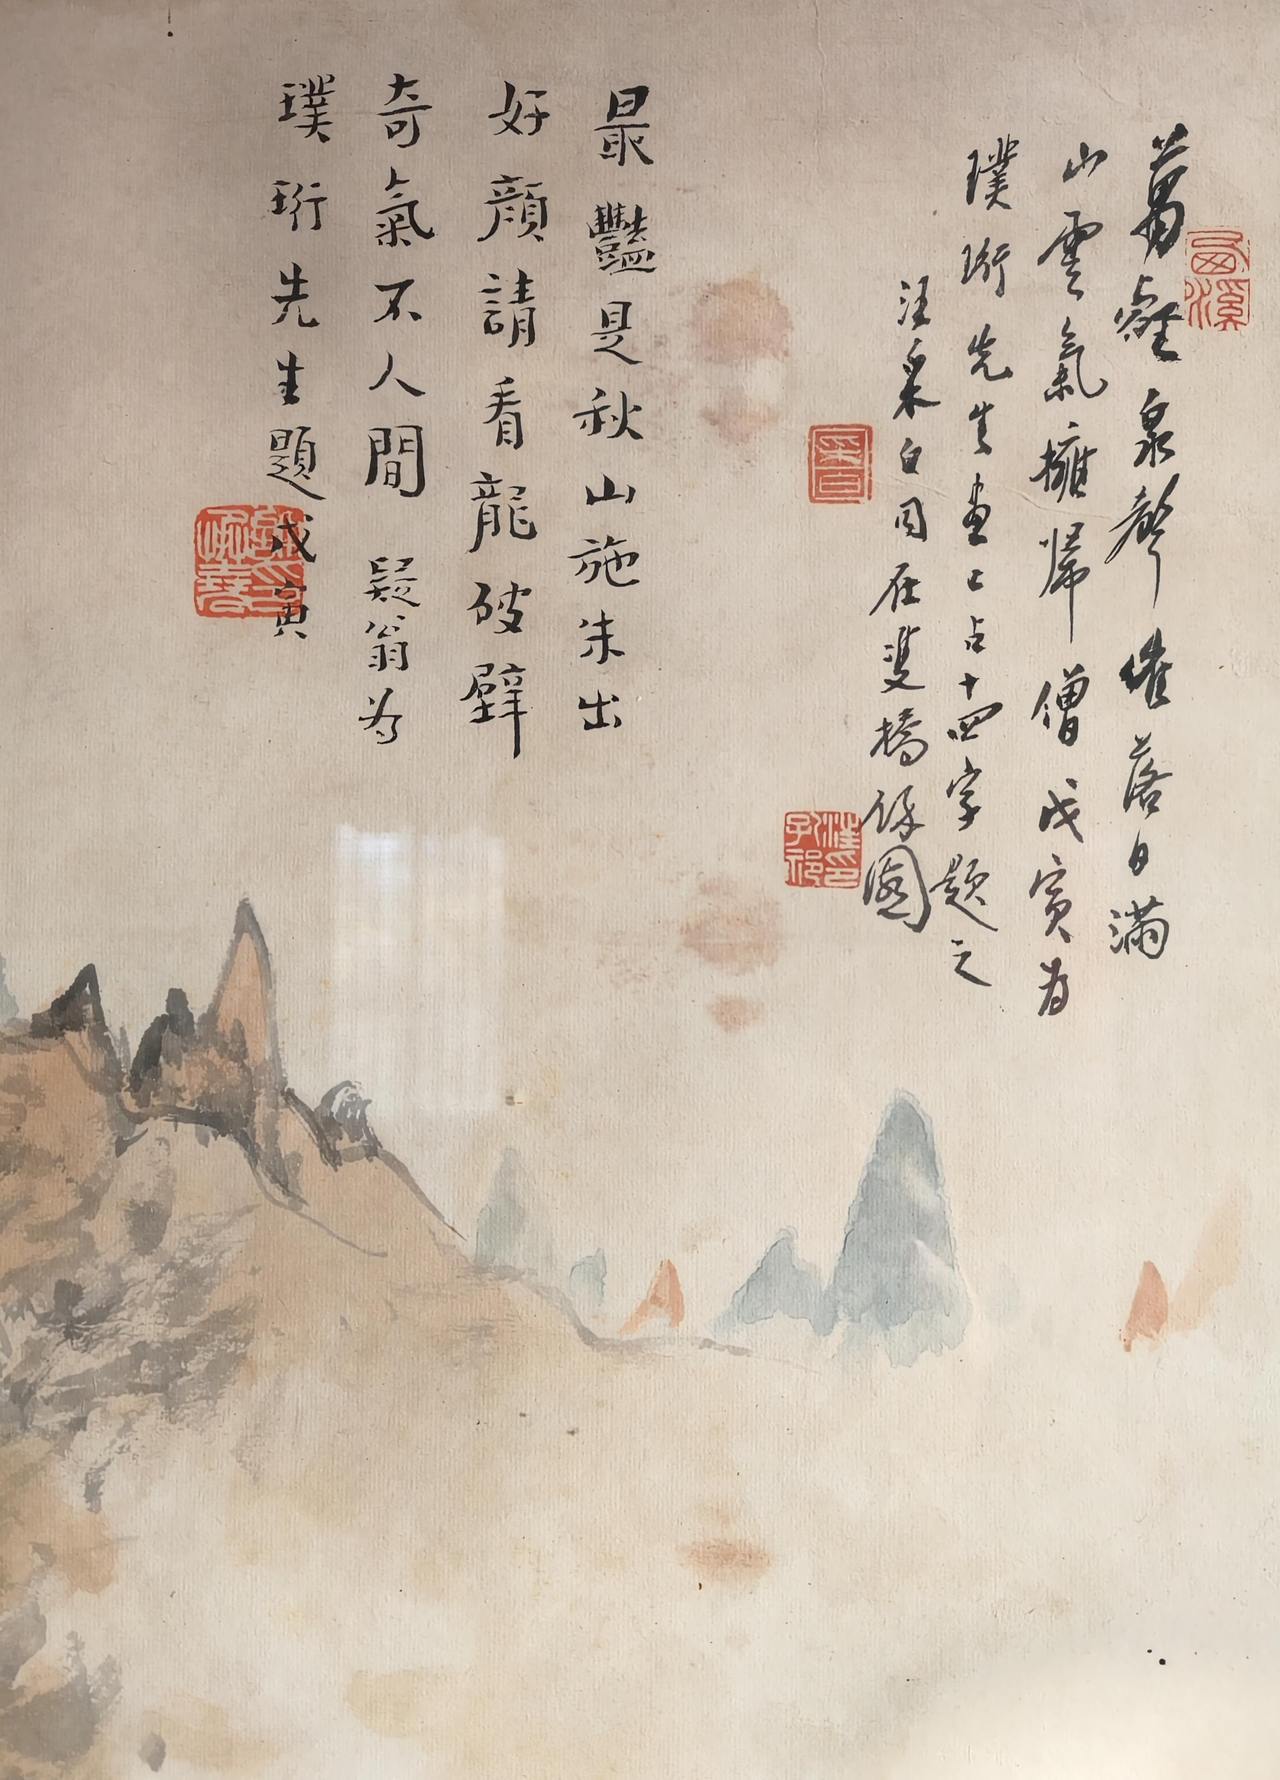 萬壑泉聲催落日滿
山雲氣擁歸僧戊寅為
璞珩先生畫已占十四字題之
汪采白同在雙橋
最豔是秋山施朱出
好顏請看龍破壁
奇氣不人間 疑翁為
璞珩先生題戊寅
采白
汪印孔祁